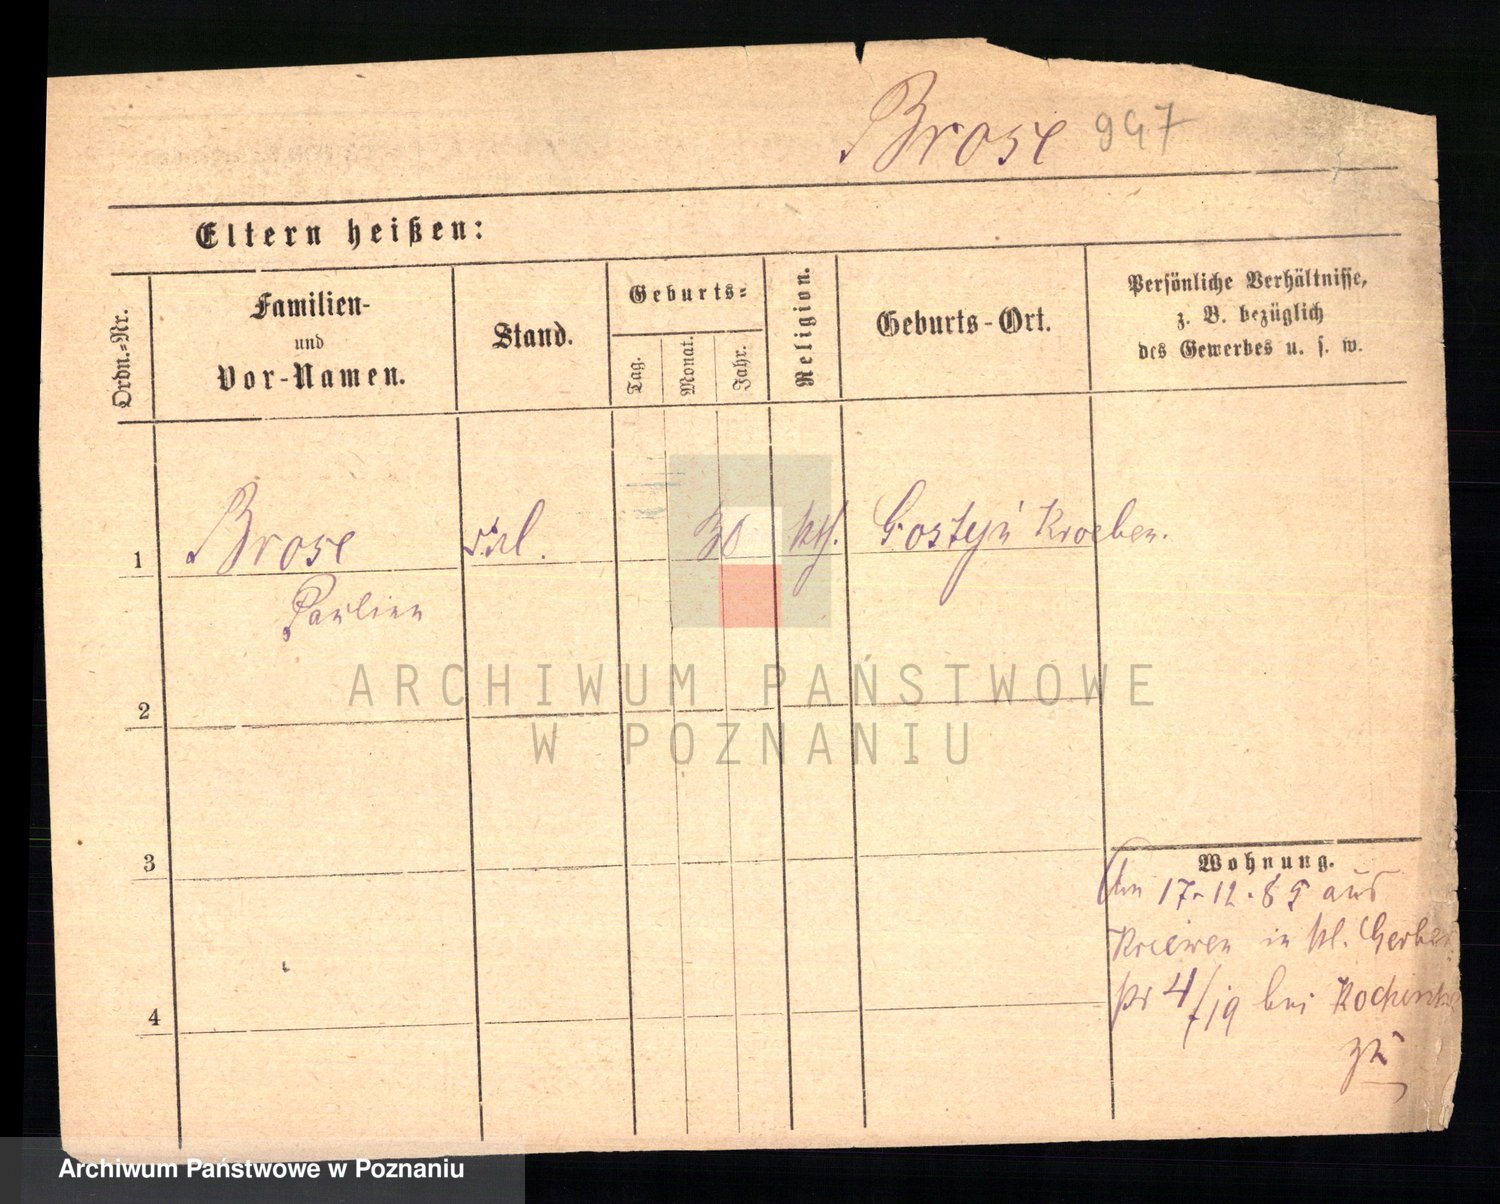 Brose 947
Eltern heißen:
Ordn.-Nr.
Familien-
und
Vor-Namen.
Stand.
Geburts-
Tag.
Monat.
Jahr.
Religion.
Geburts-Ort.
Persönliche Verhältnisse,
z. B. bezüglich
des Gewerbes u. s. w.
1 Brose Frl. 30 kth. Gostyń Kroeben.
Paulina
ARCHIWUM PAŃSTWOWE
W POZNANIU
2
3
4
Wohnung.
Am 17.12.85 aus
Kriewen in kl. Gerber
str 4/19 bei
zu
Archiwum Państwowe w Poznaniu